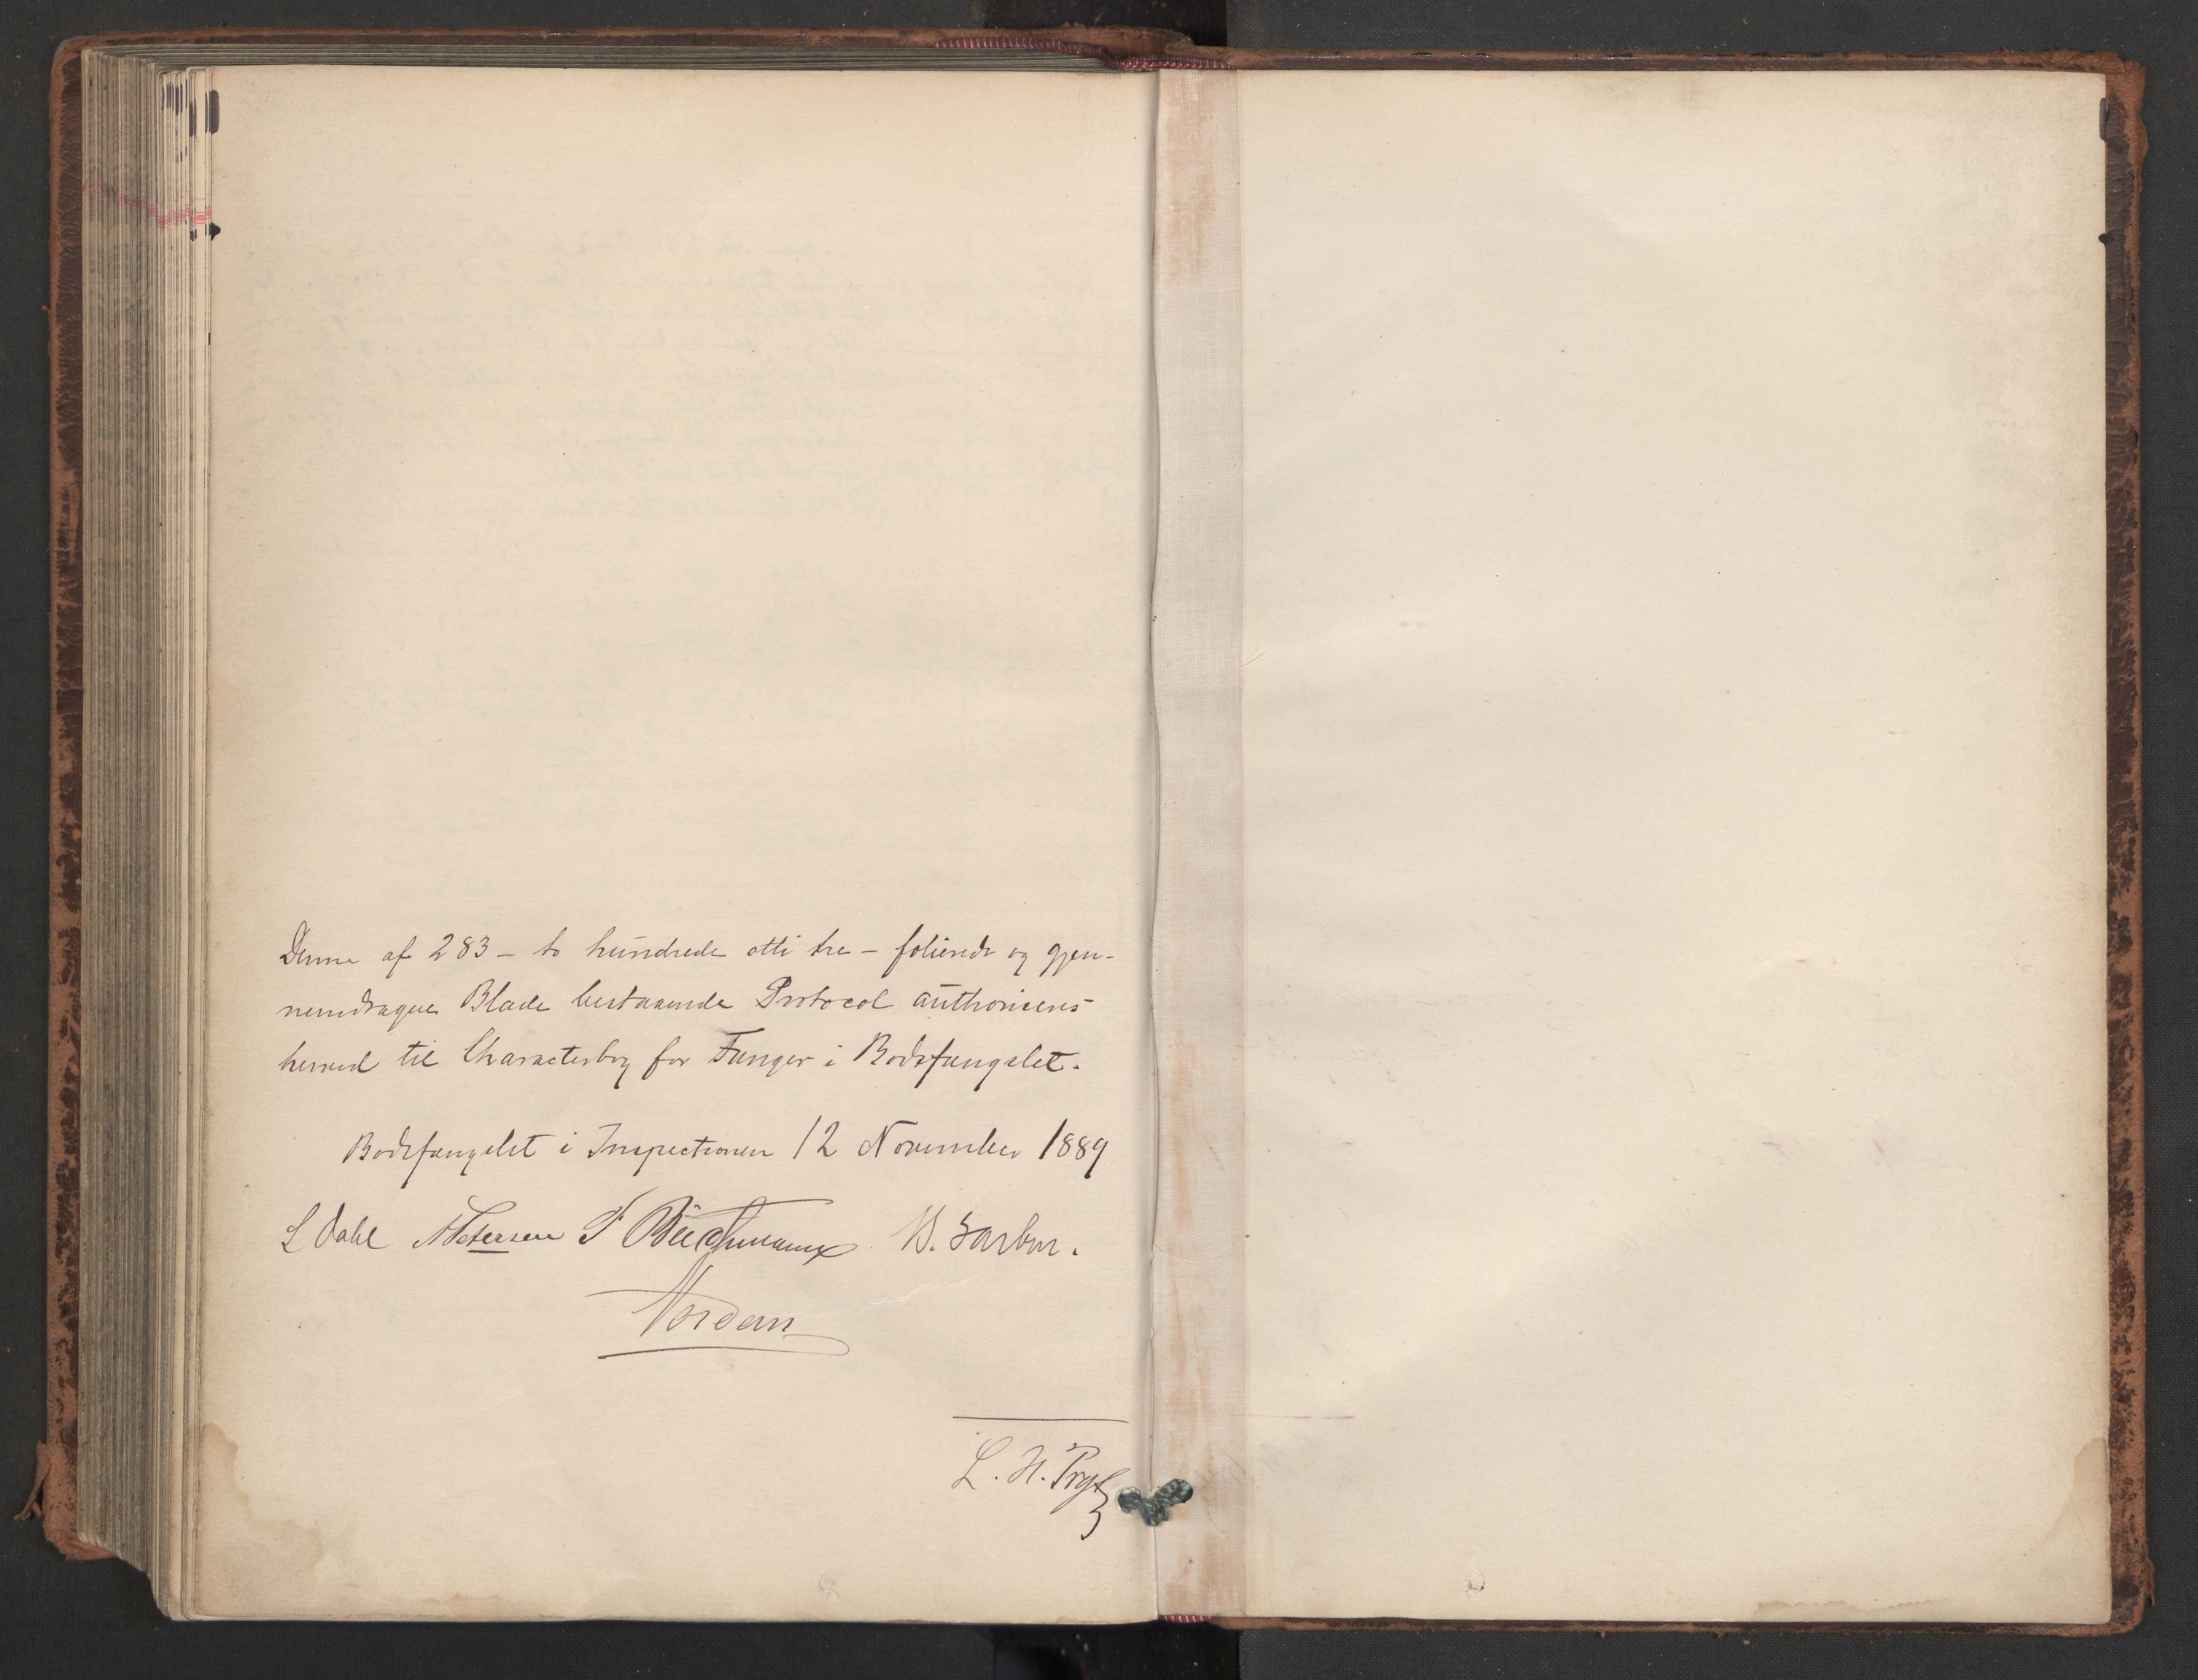 Denne af 283 – to hundrede otti tre – folierede og gjen-
nemdragne Blade bestaaende Protocol authoriseres
herved til Characterbog for Fanger i Bodsfængslet.
Bodsfængslet i Inspectionen 12 November 1889
L Dahl A Petersen F Beichmann
Nordan
L. H. Prytz